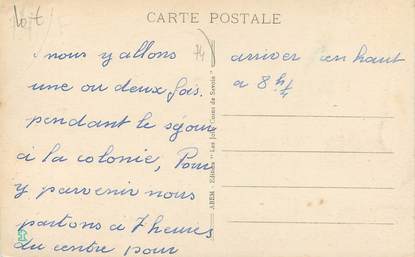 CARTE POSTALE
nous y allons
une ou deux fois.
pendant le séjour
à la colonie, Pour
y parvenir nous
partons à 7 heures
du centre pour
arriver en haut
a 8 h
74
ABEM - Editeur "Les Jolis Coins de Savoie"